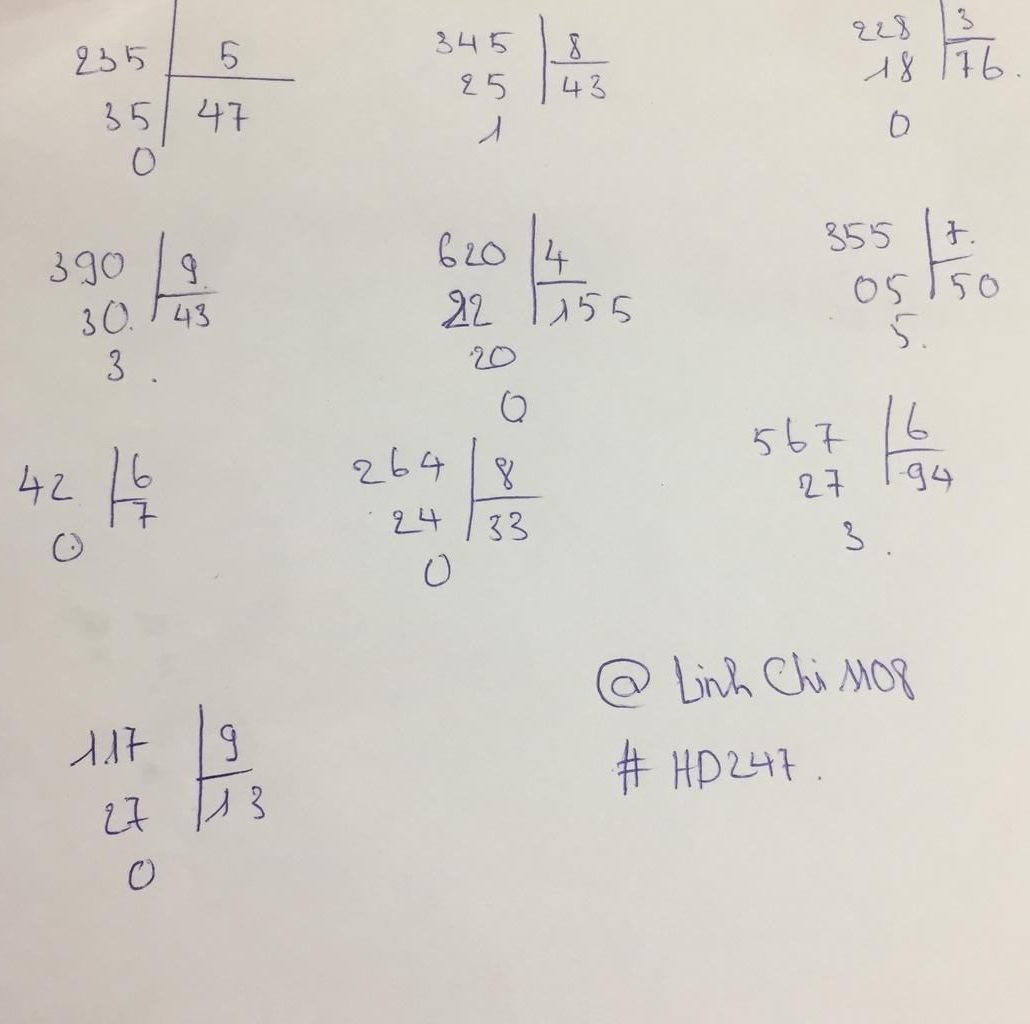 235 5
35 47
0
345 8
25 43
1
228 3
18 76.
0
390 9.
30. 43
3.
620 4
22 155
20
0
355 7.
05 50
5.
42 6
0 7
264 8
24 33
0
567 6
27 94
3.
117 9
27 13
0
@ Linh Chi 1108
# HD247.